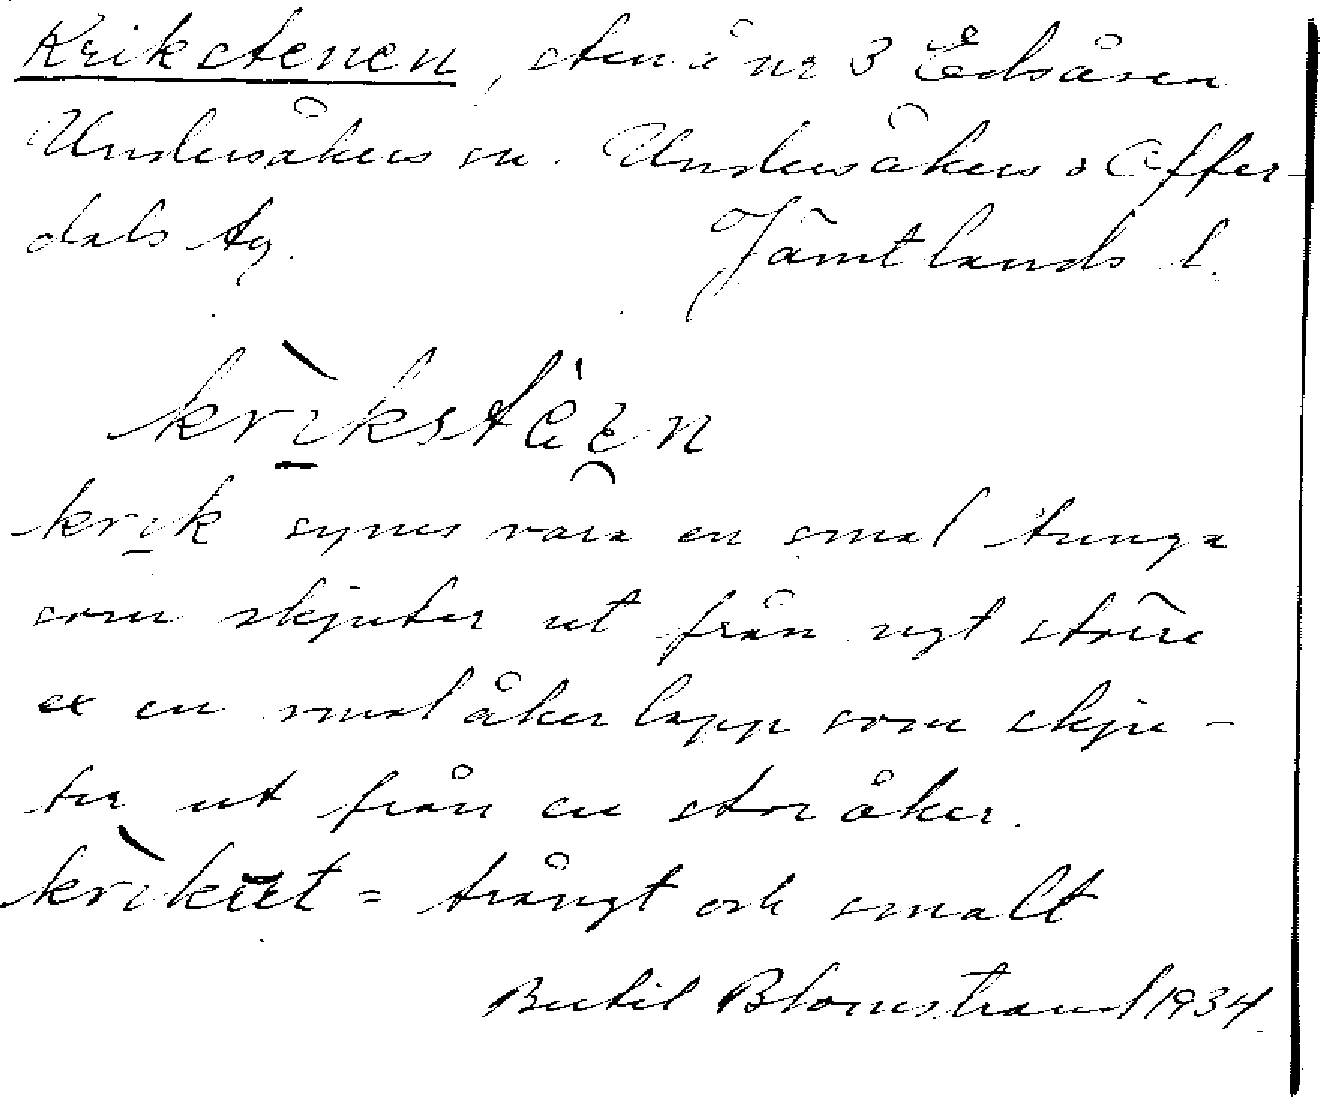 Krikstenen, sten å nr 3 Edsåsen
Undersåkers sn. Undersåkers o Offer-
dals tg. Jämtlands l.
krìkstèᶒn
krik synes vara en smal tunga
som skjuter ut från ngt större
ex en smal åkerlapp som skju-
ter ut från en stor åker.
krìkut = trångt och smalt
Bertil Blomstrand 1934